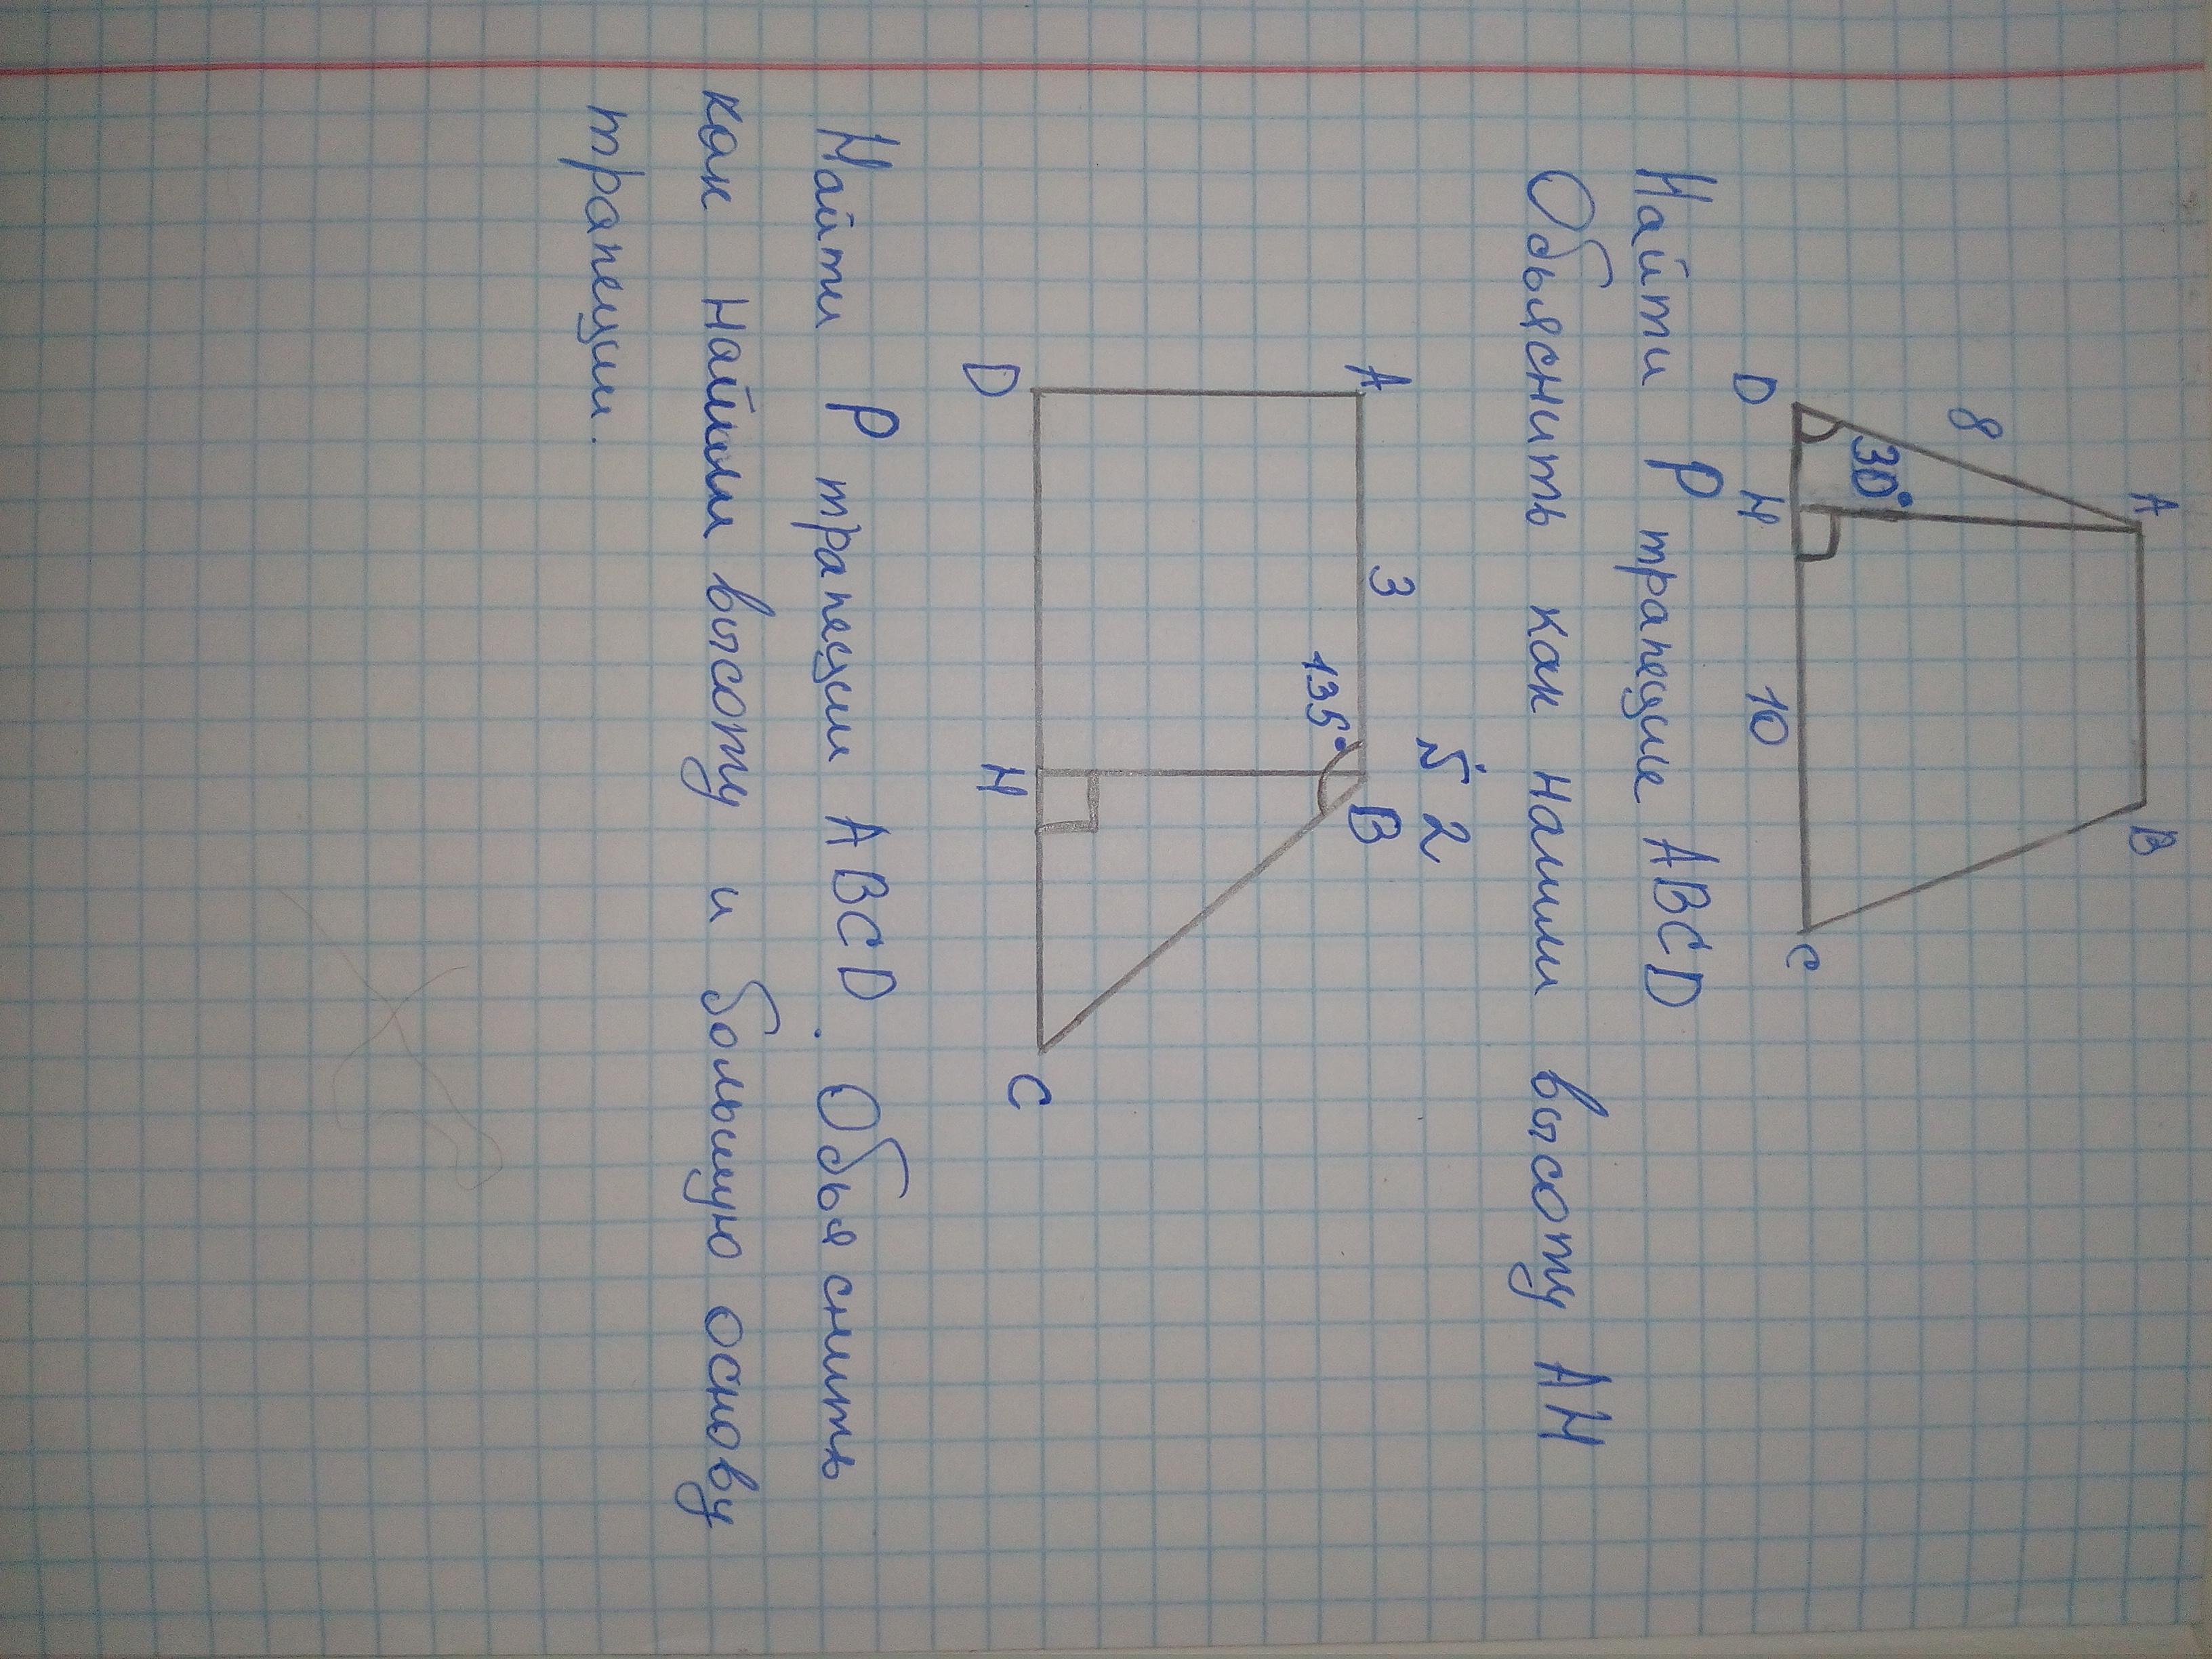 A B
8
30°
D H 10 C
Найти P трапецие ABCD
Обьяснить как нашли высоту AH
№ 2
A 3 B
135°
D H C
Найти P трапеции ABCD. Обьяснить
как Найшли высоту и большую основу
трапеции.